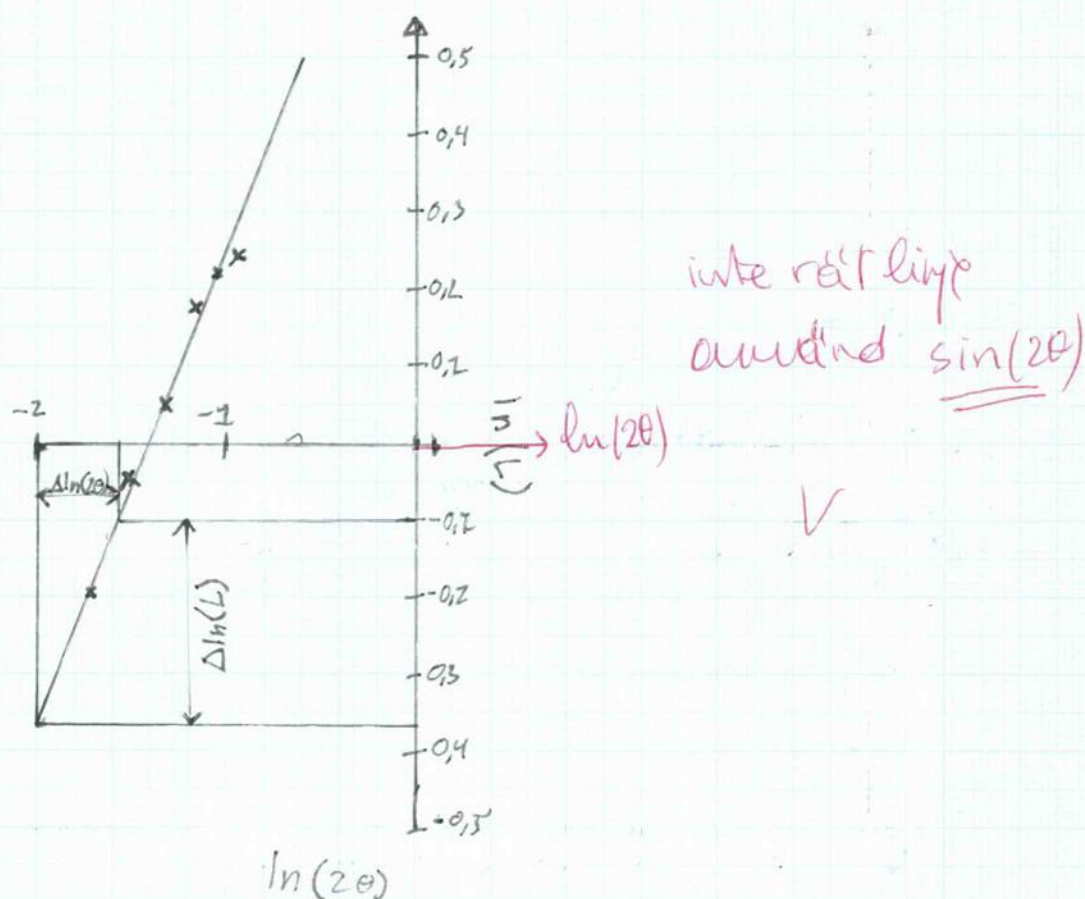 0,5
0,4
0,3
0,2
0,1
-2
-1
ln(L)
ln(2θ)
Δln(2θ)
-0,1
-0,2
Δln(L)
0,3
0,4
-0,5
ln(2θ)
inte rät linje
använd sin(2θ)
V